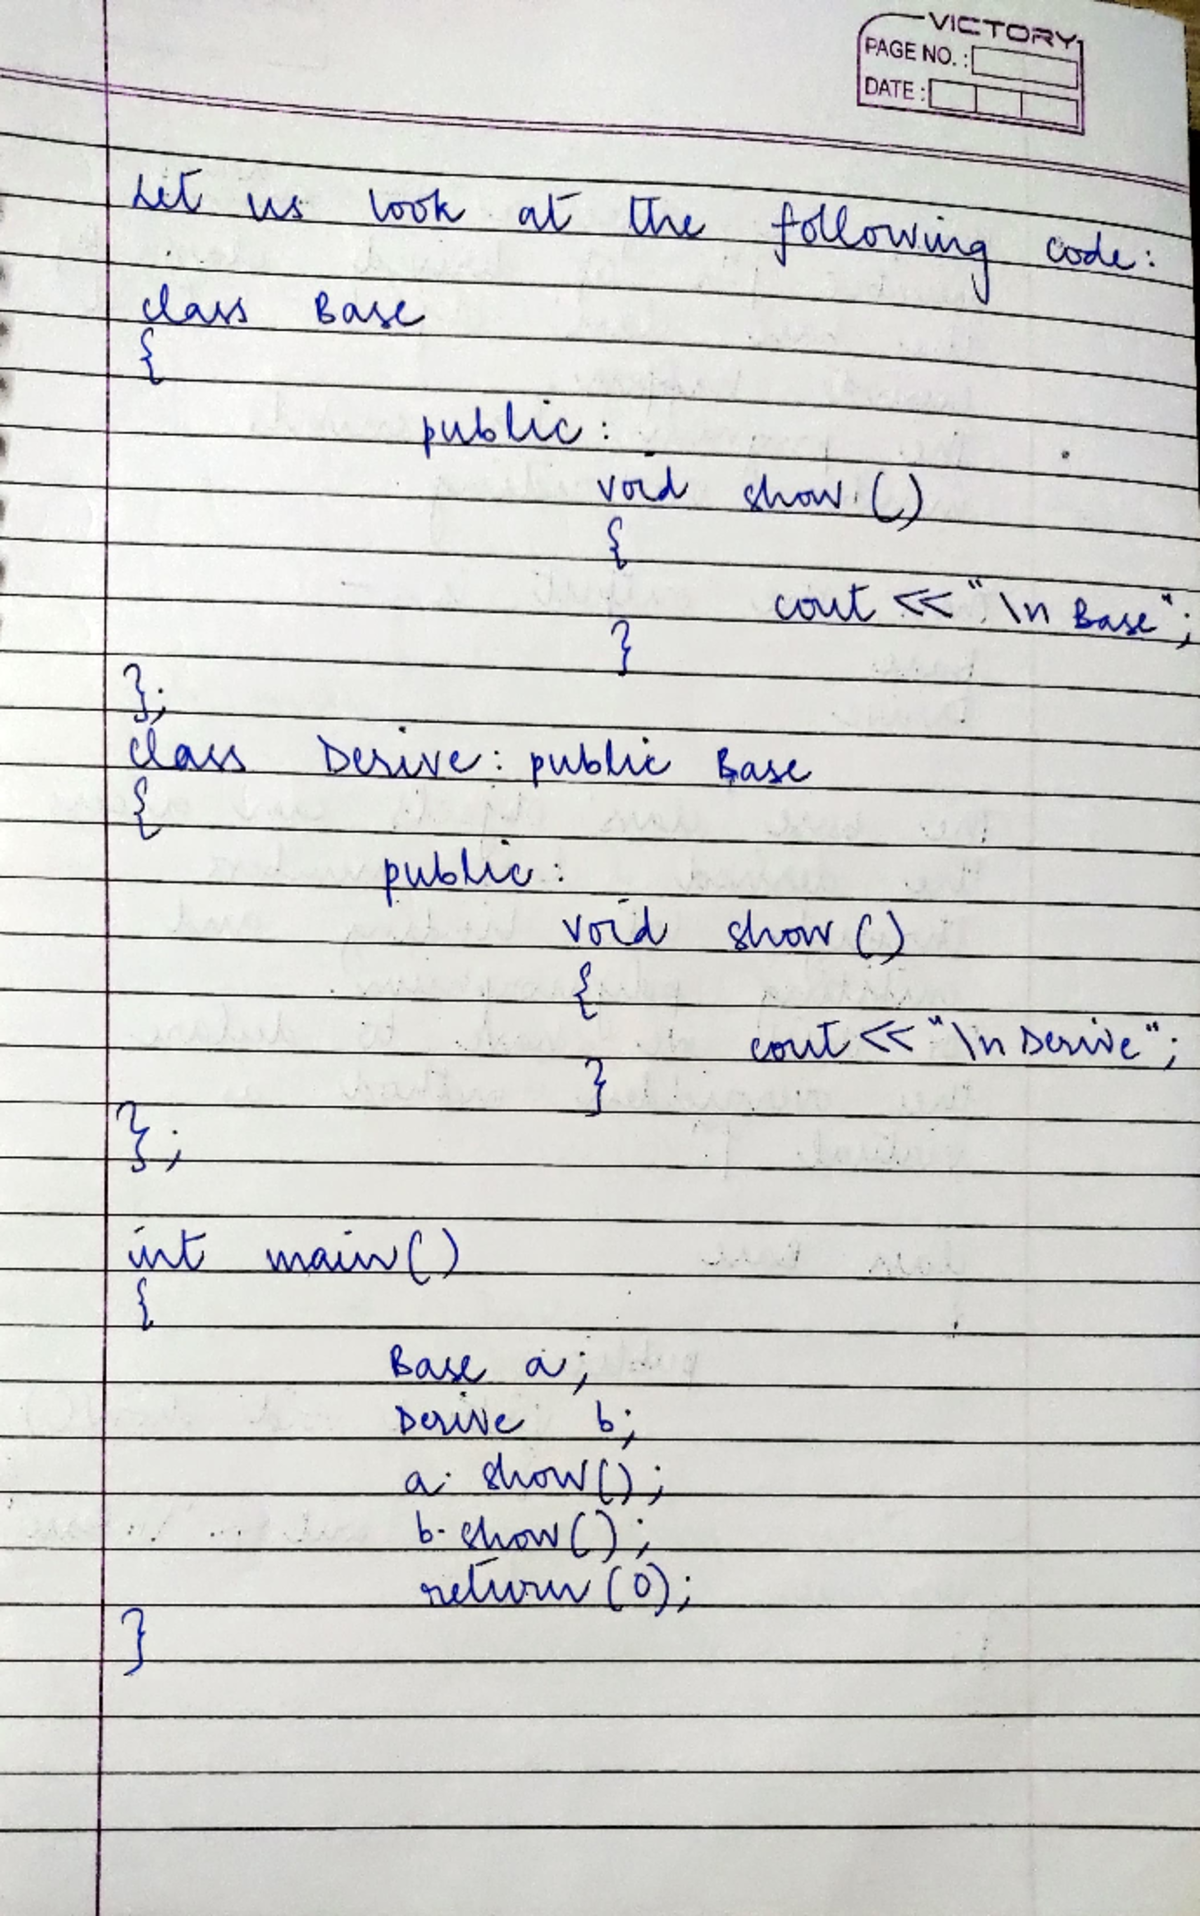 VICTORY
PAGE NO. :
DATE :
Let us look at the following code:
class Base
{
public:
void show()
{
cout << "\n Base";
}
};
class Derive: public Base
{
public:
void show()
{
cout << "\n Derive";
}
};
int main()
{
Base a;
Derive b;
a. show();
b. show();
return (0);
}